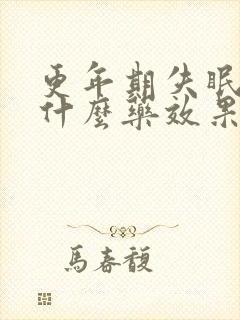 更年期失眠
什麼藥效果
馬春馥